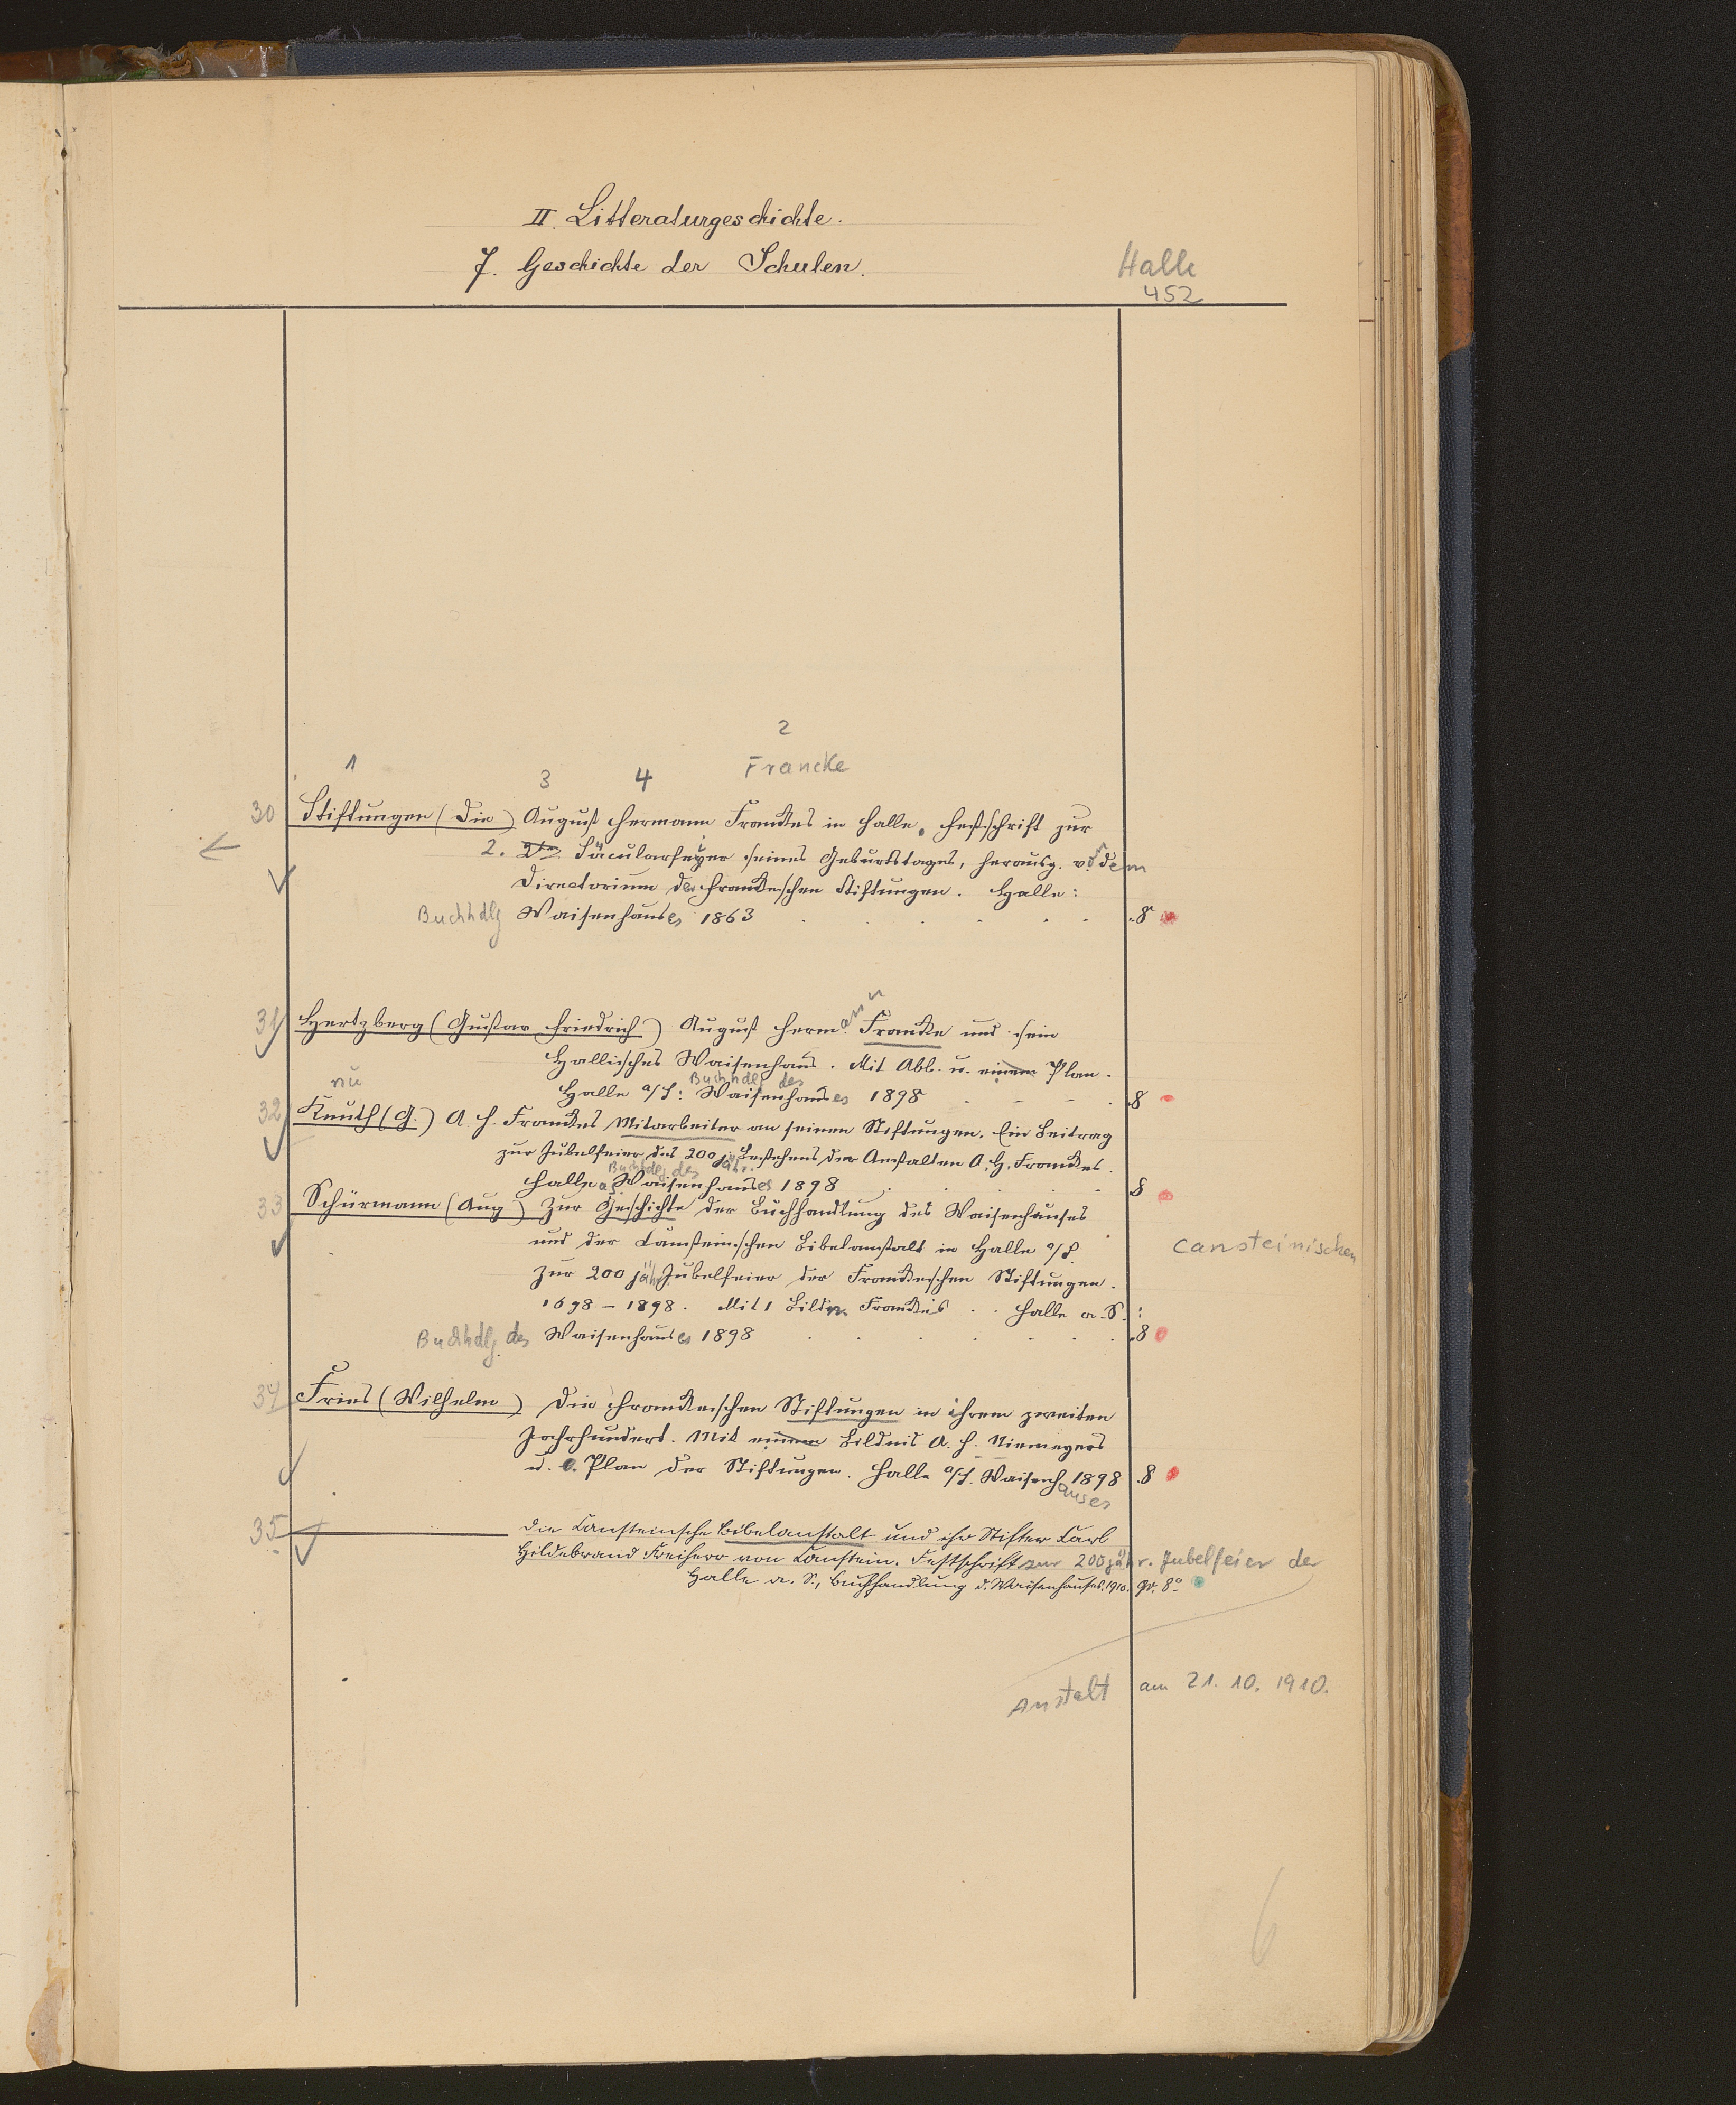 II. Litteraturgeschichte.
7. Geschichte der Schulen.
Halle
452
2
1 3 4 Francke
30 Stiftungen (Die) August Hermann Franckes in Halle. Festschrift zur
2. 2ten Säcularfeyer seines Geburtstages, herausg. von dem
Directorium der Franckeschen Stiftungen. Halle:
Buchhdlg Waisenhauses 1863 . . . . . . 8
31 Hertzberg (Gustav Friedrich) August Hermann Francke und sein
Hallisches Waisenhaus. Mit Abb. u. einem Plan.
nu Buchhdlg des
Halle a/S: Waisenhauses 1898 . . . . 8
32 Knuth (G.) A. H. Franckes Mitarbeiter an seinen Stiftungen. Ein Beitrag
zur Jubelfeier des 200 jähr. Bestehens der Anstalten A. H. Franckes.
Buchhdlg des
Halle aS Waisenhauses 1898 . . . . 8
33 Schürmann (Aug) Zur Geschichte der Buchhandlung des Waisenhauses
und der Cansteinschen Bibelanstalt in Halle a/S. cansteinischen
Zur 200 jähr Jubelfeier der Franckeschen Stiftungen.
1698 – 1898. Mit 1 Bildn. Franckes . . Halle a. S.:
Buchhdlg. des Waisenhauses 1898 . . . . . . 8
34 Fries (Wilhelm) Die Franckeschen Stiftungen in ihrem zweiten
Jahrhundert. Mit einem Bildnis A. H. Niemeyers
u. e. Plan der Stiftungen. Halle a/S. Waisenhauses 1898 8
35 ——— Die Cansteinsche Bibelanstalt und ihr Stifter Carl
Hildebrand Freiherr von Canstein. Festschrift zur 200 jähr. Jubelfeier der
Halle a. S., Buchhandlung d. Waisenhauses. 1910. gr. 8°
Anstalt am 21. 10. 1910.
6